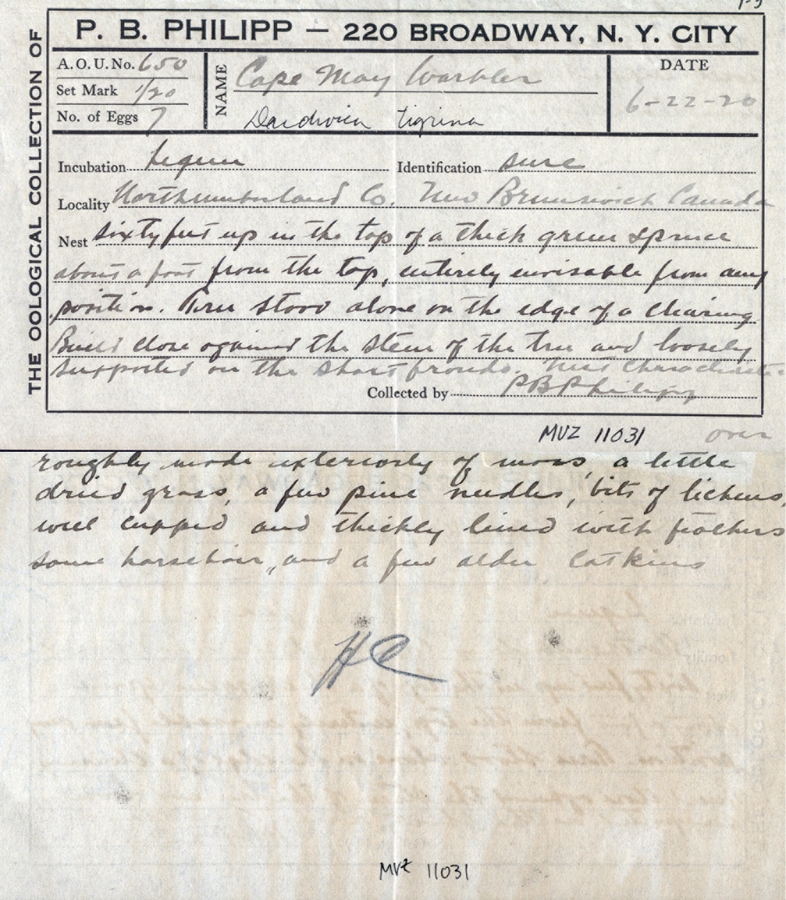 THE OOLOGICAL COLLECTION OF
P. B. PHILIPP — 220 BROADWAY, N. Y. CITY
A.O.U. No. 650
Set Mark 1/20
No. of Eggs 7
NAME Cape May Warbler
Dendroica tigrina
DATE
6-22-20
Incubation begun Identification sure
Locality Northumberland Co. New Brunswick Canada
Nest sixty feet up in the top of a thick green spruce
about a foot from the top, entirely invisable from any
position. Tree stood alone on the edge of a clearing
Built close against the stem of the tree and loosely
supported on the short fronds. Nest characteristic
Collected by P B Philipp
MVZ 11031 over
roughly made exteriorly of moss, a little
dried grass, a few pine needles, bits of lichens,
well cupped and thickly lined with feathers
some horsehair, and a few alder catkins
HC
MVZ 11031